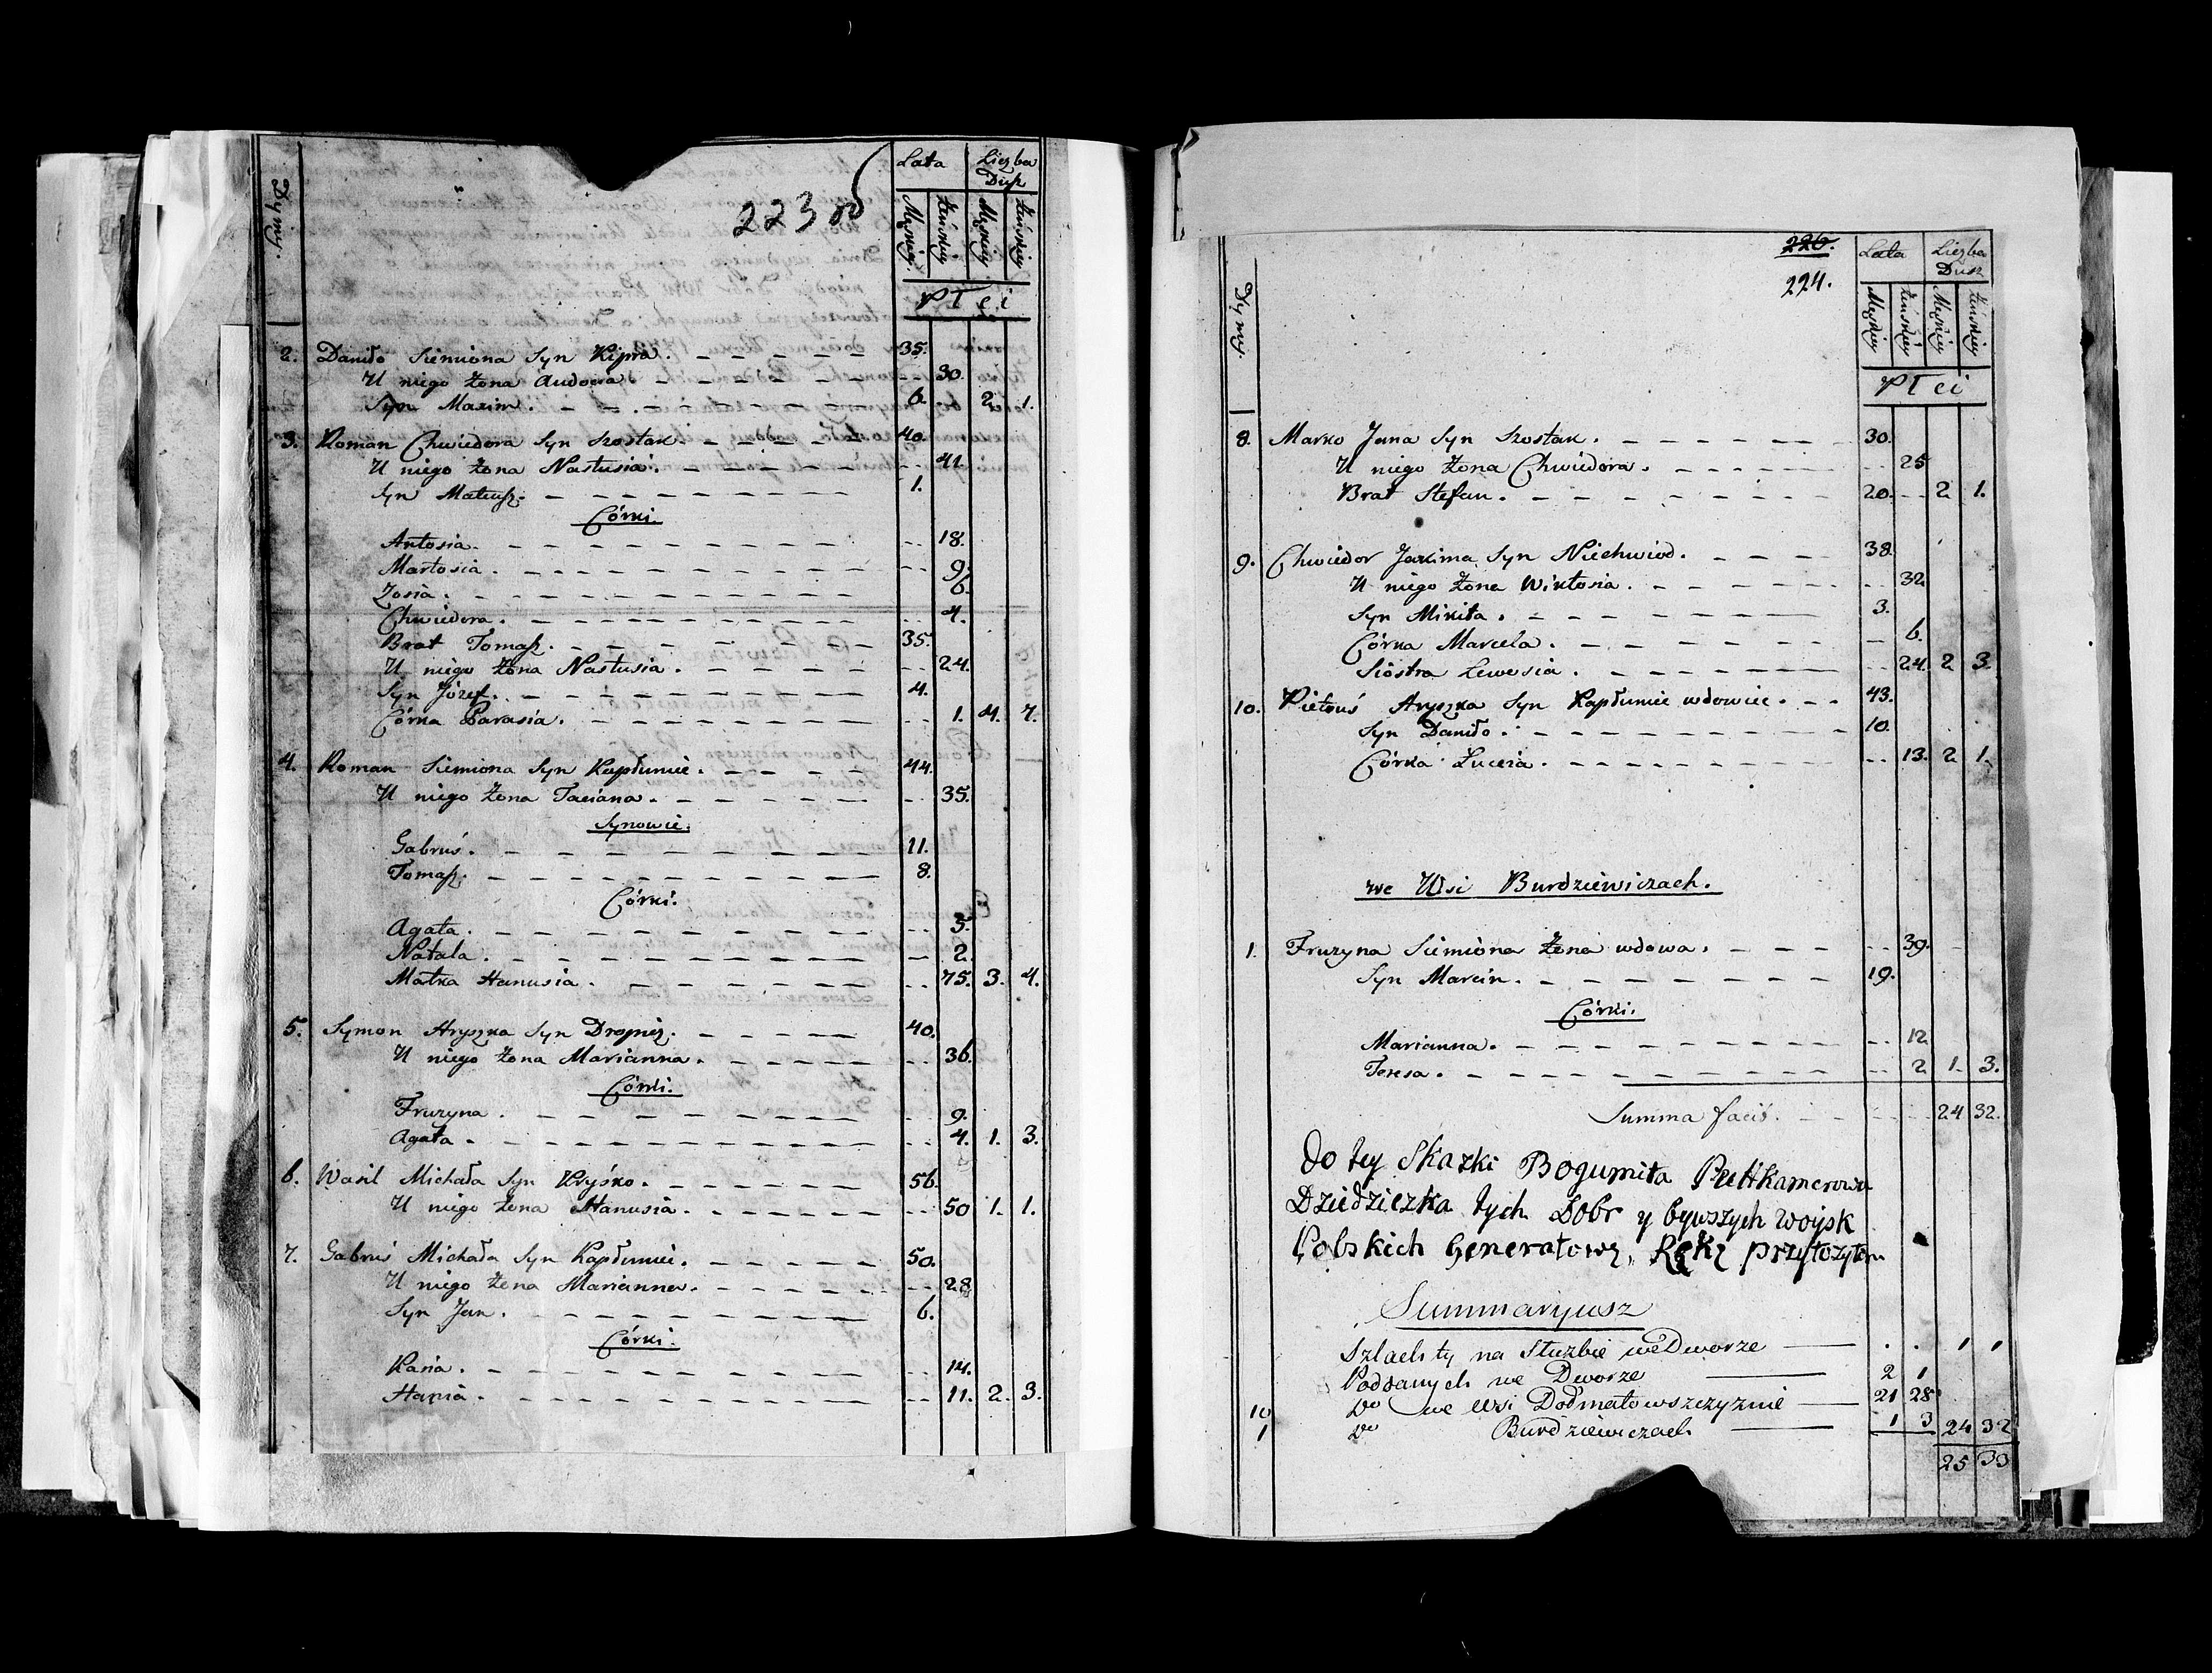 223 об
Dymy.
Lata Liczba Dusz
Męskiey. Żeńskiey. Męskiey Żeńskiey
Płci
2. Daniło Siemiona Syn Kipra. 35.
U niego Żona Audocia 30.
Syn Maxim. 6. 2. 1.
3. Roman Chwiedora Syn Szostak. 40.
U niego Żona Nastusia. 41.
Syn Mateusz. 1.
Córki.
Antosia. 18.
Martosia. 9.
Zosia. 6.
Chwiedora. 4.
Brat Tomasz. 35.
U niego Żona Nastusia. 24.
Syn Józef. 4.
Córka Parasia. 1. 4. 7.
4. Roman Siemiona Syn Kapłunie. 44.
U niego Żona Taciana. 35.
Synowie.
Gabruś. 11.
Tomasz. 8.
Córki.
Agata. 5.
Natala. 2.
Matka Hanusia. 75. 3. 4.
5. Symon Aryszka Syn 40.
U niego Żona Marianna. 36.
Córki.
Fruzyna. 9.
Agata. 4. 1. 3.
6. Wasil Michała Syn Kryśko. 56.
U niego Żona Hanusia. 50 1. 1.
7. Gabruś Michała Syn Kapłunie. 50.
U niego Żona Marianna. 28
Syn Jan. 6.
Córki.
Kasia. 14.
Hapia. 11. 2. 3.
226.
224.
Dymy.
Lata Liczba Dusz
Męskiey Żeńskiey Męskiey Żeńskiey
Płci
8. Marko Jana Syn Szostak. 30.
U niego Żona Chwiedora. 25
Brat Stefan. 20. 2 1.
9. Chwiedor Jakima Syn Niechwiod. 38.
U niego Żona Wiktosia. 32.
Syn Mikita. 3.
Córka Marcela. 6.
Siostra Lewosia. 24. 2 3.
10. Pietruś Aryszka Syn Kapłunie wdowiec. 43.
Syn Daniło. 10.
Córka Luccia. 13. 2 1.
we Wsi Burdziewiczach.
1. Fruzyna Siemiona Żona wdowa. 39.
Syn Marcin. 19.
Córki.
Marianna. 12.
Teresa. 2. 1. 3.
Summa facit. 24 32.
do tey Skazki Bogumiła Puttkamerowa
Dziedziczka tych Dobr y bywszych woysk
Polskich Generałowa, Rękę przyłożyłam
Summaryusz
Szlachty na Służbie we Dworze . . 1 1
Poddanych we Dworze 2 1
10 do we Wsi Dołmatowszczyznie 21 28
1 do Burdziewiczach 1 3 24 32
25 33